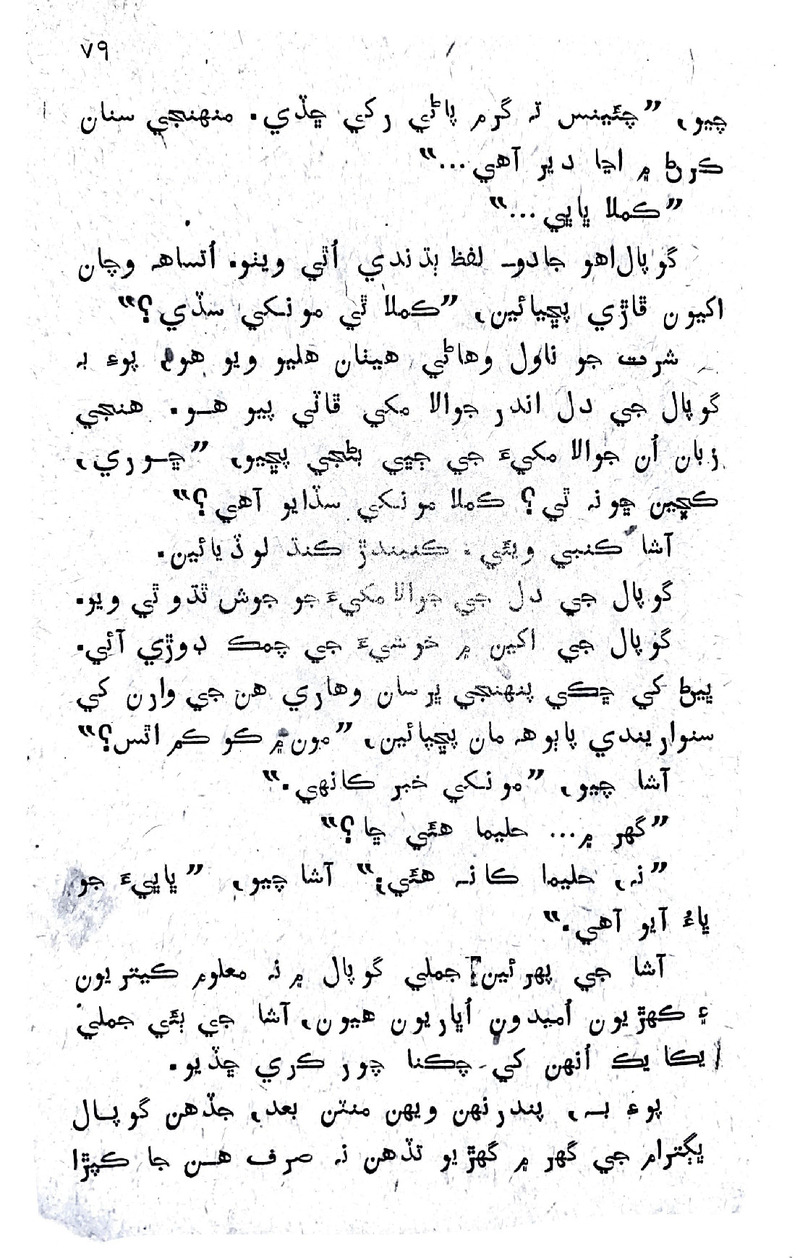 ٧٩
چيو، ”چئينس تہ گرم پاڻي رکي ڇڏي. منهنجي سنان
ڪرڻ ۾ اڃا دير آهي...“
”ڪملا ڀاڀي...“
گوپال اهو جادوـ لفظ ٻڌندي اُٿي ويٺو. اُتساهہ وچان
اکيون ڦاڙي پڇيائين، ”ڪملا ٿي مونکي سڏي؟“
شرت جو ناول وهاڻي هيٺان هليو ويو هو، پوءِ بہ
گوپال جي دل اندر جوالا مکي ڦاٽي پيو هو. هنجي
زبان اُن جوالا مکيءَ جي ڄڀي بڻجي پڇيو، ”ڇوري،
ڪڇين ڇونہ ٿي؟ ڪملا مونکي سڏايو آهي؟“
آشا ڪنبي ويئي. ڪنبندڙ ڪنڌ لوڏيائين.
گوپال جي دل جي جوالا مکيءَ جو جوش ٿڌو ٿي ويو.
گوپال جي اکين ۾ خوشيءَ جي چمڪ ڊوڙي آئي.
ڀيڻ کي ڇڪي پنهنجي ڀرسان وهاري هن جي وارن کي
سنواريندي پاٻوهہ مان پڇيائين، ”مون ۾ ڪو ڪم اٿس؟“
آشا چيو، ”مونکي خبر ڪانهي.“
”گهر ۾... حليما هئي ڇا؟“
”نہ، حليما ڪانہ هئي؛“ آشا چيو، ”ڀاڀيءَ جو
ڀاءُ آيو آهي.“
آشا جي پهرئين جملي گوپال ۾ نہ معلوم ڪيتريون
۽ ڪهڙيون اُميدون اُڀاريون هيون، آشا جي ٻئي جملي
يڪايڪ اُنهن کي چڪنا چور ڪري ڇڏيو.
پوءِ بہ، پندرنهن ويهن منٽن بعد، جڏهن گوپال
ڀڳترام جي گهر ۾ گهڙيو تڏهن نہ صرف هن جا ڪپڙا